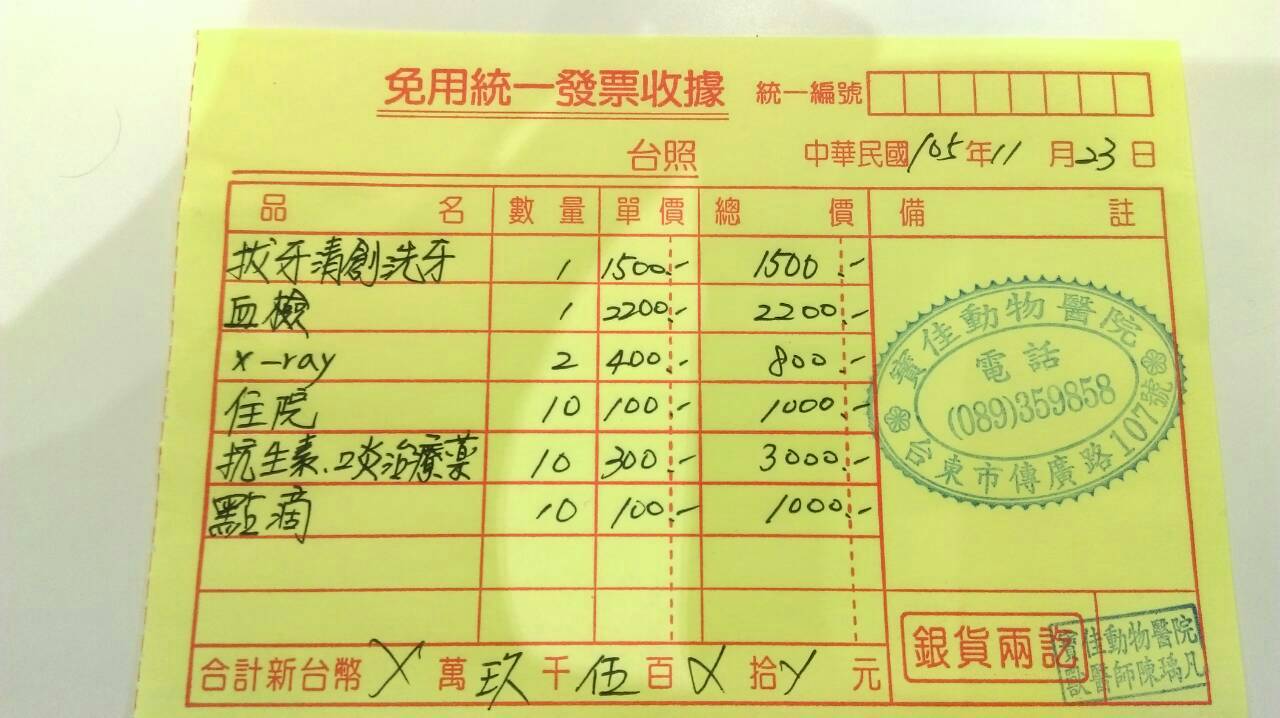 免用統一發票收據 統一編號
台照 中華民國105年11月23日
品名 數量 單價 總價 備註
拔牙清創洗牙 1 1500.- 1500.-
血檢 1 2200.- 2200.-
x-ray 2 400.- 800.-
住院 10 100.- 1000.-
抗生素、口炎治療藥 10 300.- 3000.-
點滴 10 100.- 1000.-
寶佳動物醫院
電話
(089)359858
台東市傳廣路107號
合計新台幣X萬玖千伍百X拾X元
銀貨兩訖
寶佳動物醫院
獸醫師陳瑀凡